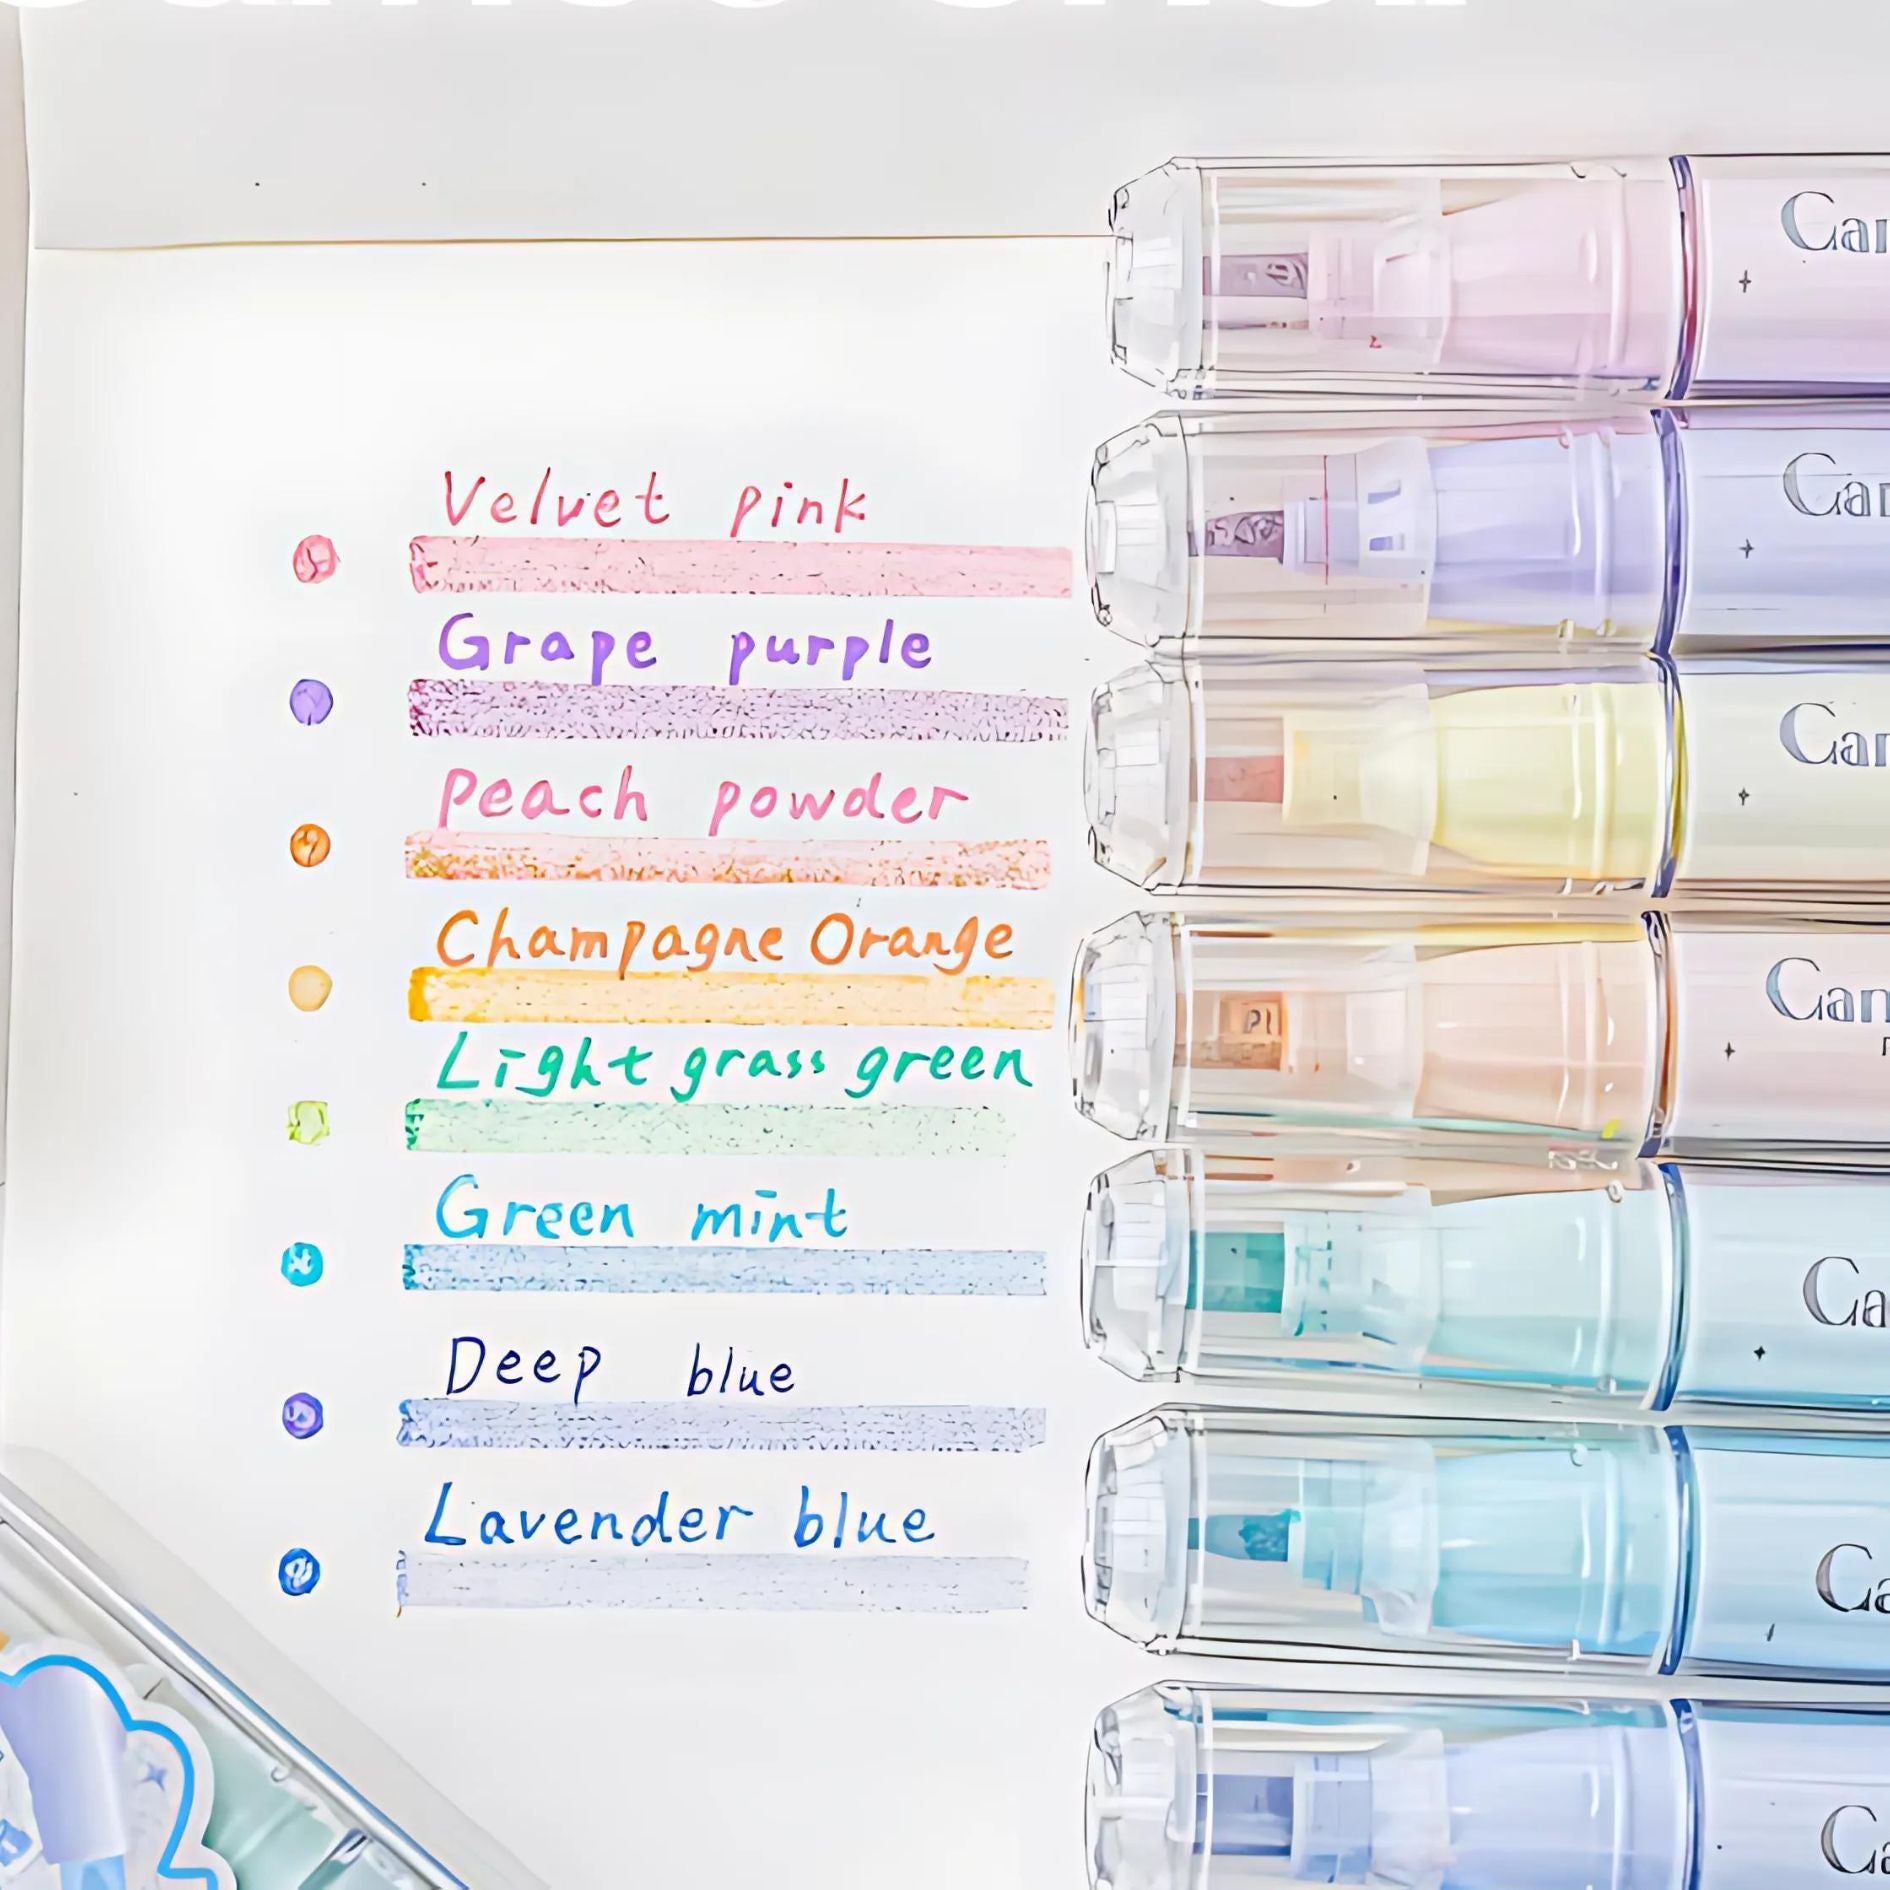 Velvet pink
Grape purple
Peach powder
Champagne Orange
Light grass green
Green mint
Deep blue
Lavender blue